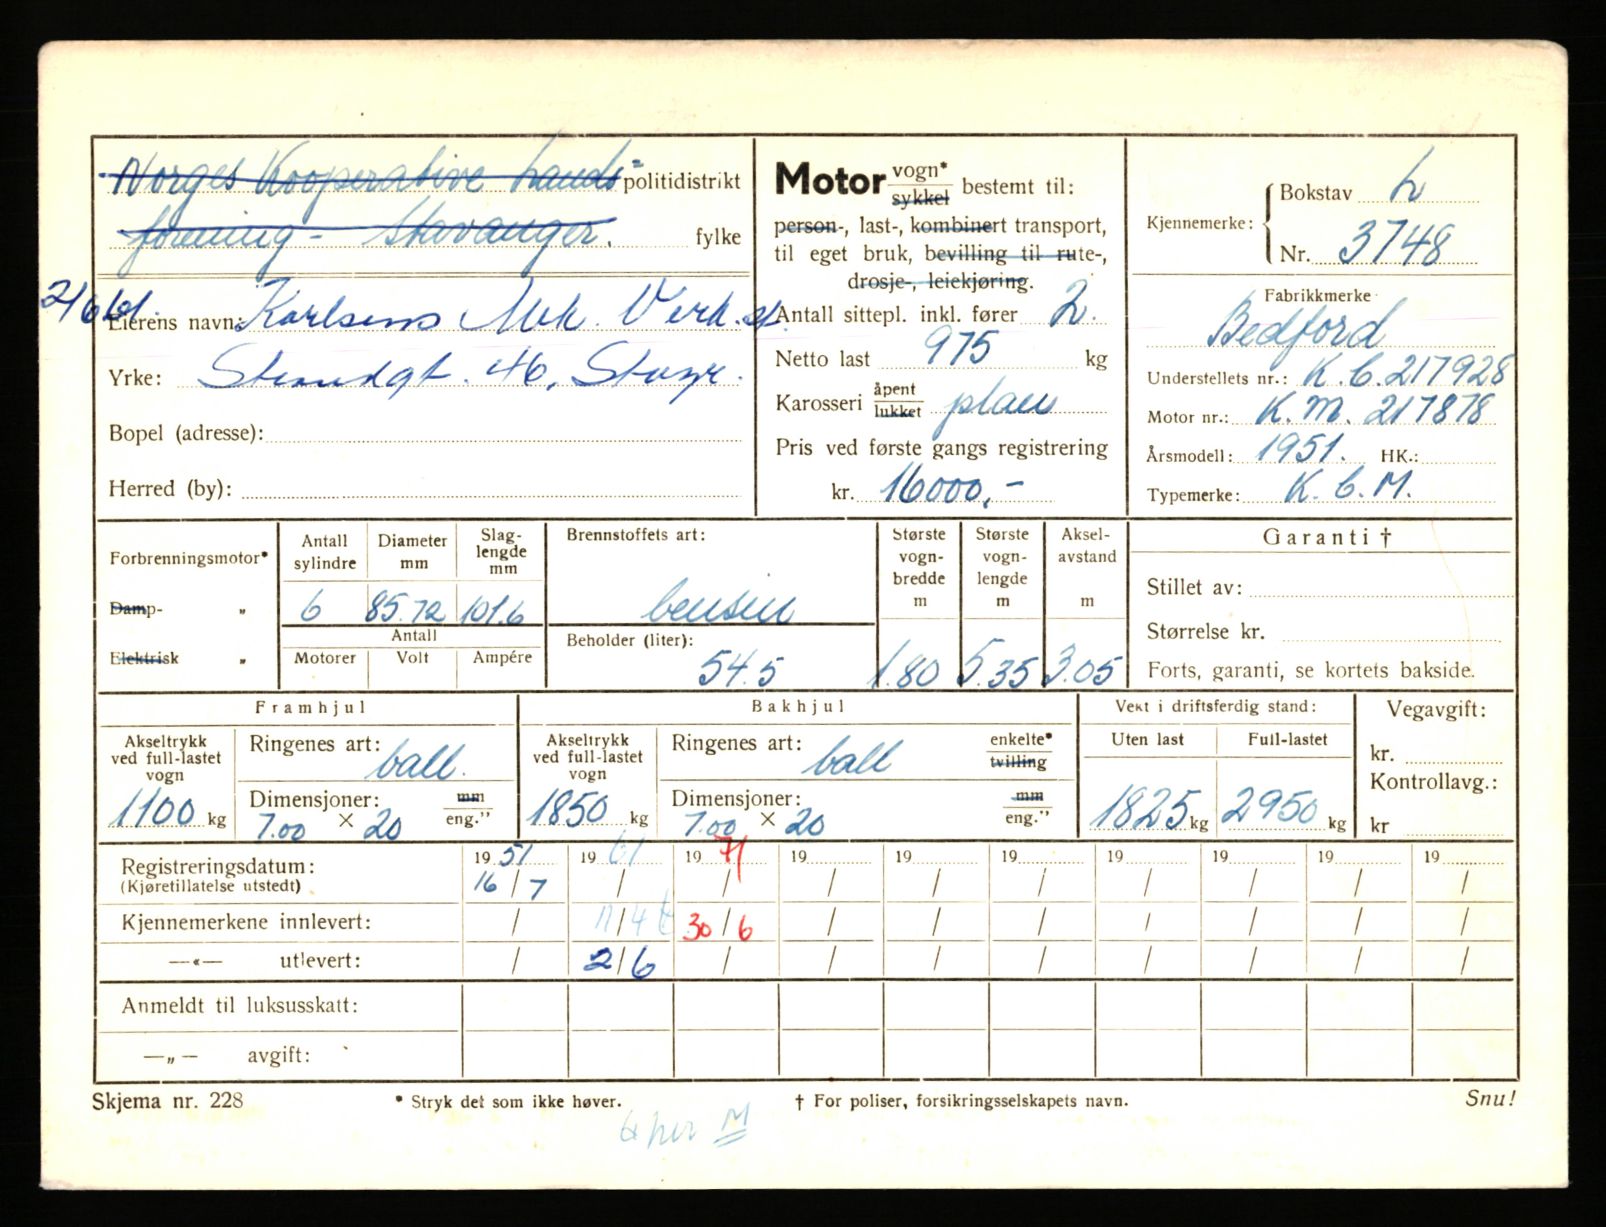 Norges Kooperative lands= politidistrikt
forening - Stavanger. fylke
2/6 61.
Eierens navn: Karlsens Mek. Verk.st.
Yrke: Strandgt. 46, Stvgr.
Bopel (adresse):
Herred (by):
Motor vogn*
sykkel bestemt til:
person-, last-, kombinert transport,
til eget bruk, bevilling til rute-,
drosje-, leiekjøring.
Antall sittepl. inkl. fører 2.
Netto last 975 kg
Karosseri åpent
lukket plan
Pris ved første gangs registrering
kr. 16000,-
Kjennemerke: Bokstav L
Nr. 3748
Fabrikkmerke
Bedford
Understellets nr.: K.C. 217928
Motor nr.: K.M. 217878
Årsmodell: 1951. HK.:
Typemerke: K.C.M.
Forbrenningsmotor*
Damp- „
Elektrisk „
Antall sylindre 6
Diameter mm 85.72
Slag-lengde mm 101.6
Antall
Motorer Volt Ampére
Brennstoffets art:
bensin
Beholder (liter):
54.5
Største vogn-bredde m 1.80
Største vogn-lengde m 5.35
Aksel-avstand m 3.05
Garanti †
Stillet av:
Størrelse kr.
Forts, garanti, se kortets bakside.
Framhjul
Akseltrykk ved full-lastet vogn
1100 kg
Ringenes art: ball.
Dimensjoner: mm
7.00 × 20 eng."
Bakhjul
Akseltrykk ved full-lastet vogn
1850 kg
Ringenes art: ball enkelte*
tvilling
Dimensjoner: mm
7.00 × 20 eng."
Vekt i driftsferdig stand:
Uten last Full-lastet
1825 kg 2950 kg
Vegavgift:
kr.
Kontrollavg.:
kr
Registreringsdatum: 19 51 19 61 19 71 19 19 19 19 19 19 19
(Kjøretillatelse utstedt) 16/7 / / / / / / / / /
Kjennemerkene innlevert: / 11/4 30/6 / / / / / / /
—«— utlevert: / 2/6 / / / / / / / /
Anmeldt til luksusskatt:
—„— avgift:
Skjema nr. 228 * Stryk det som ikke høver. † For poliser, forsikringsselskapets navn. Snu!
M